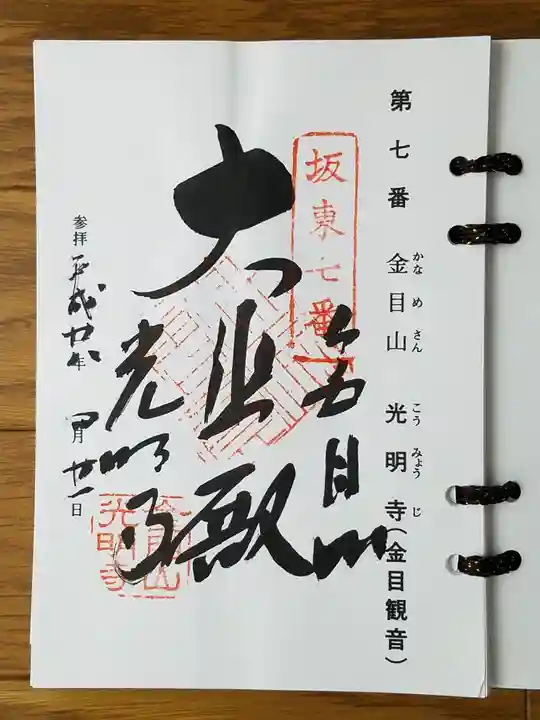 第七番 金目山 光明寺(金目観音)
かなめさん こうみょうじ
坂東七番
金目山
大悲殿
光明寺
参拝 平成廿年 四月廿一日
金目山
光明寺